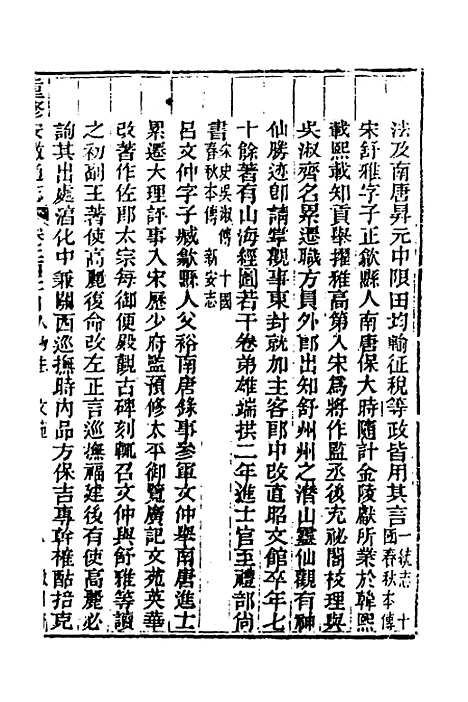 法及南唐昇元中限田均輸征稅等政皆用其言一統志 十國春秋本傳
宋舒雅字子正歙縣人南唐保大時隨計金陵獻所業於韓熙
載熙載知貢舉擢雅高第入宋爲將作監丞後充祕閣校理與
吳淑齊名累遷職方員外郎出知舒州州之潛山靈仙觀有神
仙勝迹卽請掌觀事東封就加主客郎中改直昭文館卒年七
十餘著有山海經圖若干卷弟雄端拱二年進士官至禮部尙
書宋史吳淑傳 十國春秋本傳 新安志
呂文仲字子臧歙縣人父裕南唐錄事參軍文仲舉南唐進士
累遷大理評事入宋歷少府監預修太平御覽廣記文苑英華
改著作佐郎太宗每御便殿觀古碑刻輒召文仲與舒雅等讀
之初副王著使高麗復命改左正言巡撫福建後有使高麗必
詢其出處淳化中兼關西巡撫時內品方保吉專幹榷酤掊克
重修安徽通志 卷 文苑